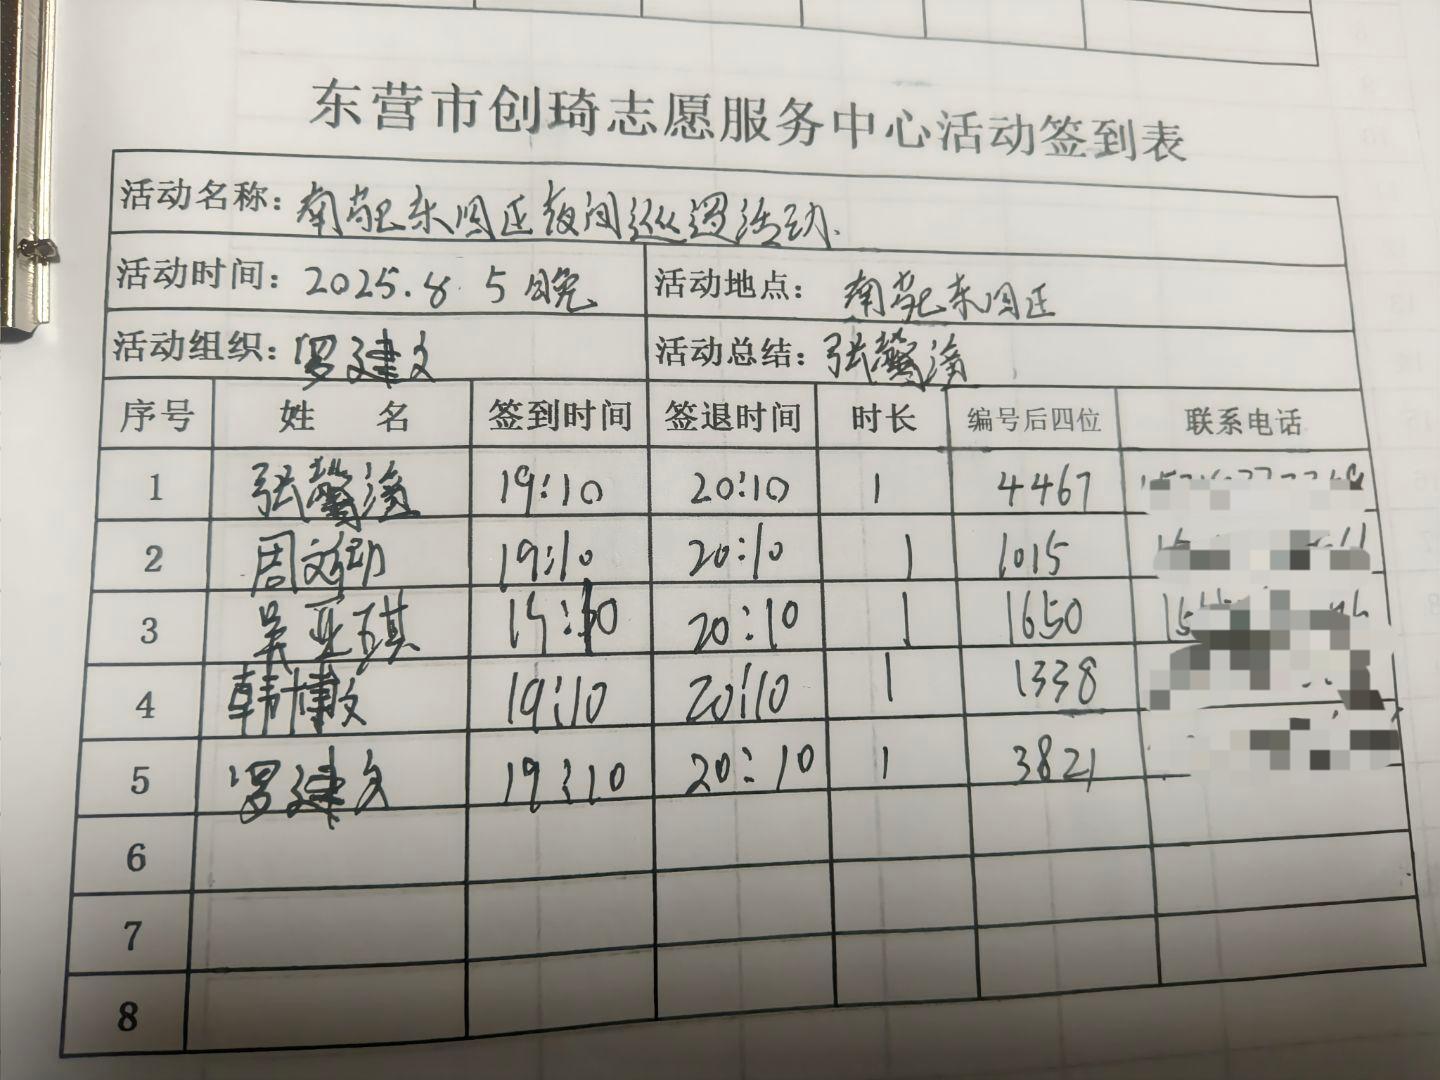 东营市创琦志愿服务中心活动签到表
活动名称：南苑东园区夜间巡逻活动.
活动时间：2025.8.5晚 活动地点：南苑东园区
活动组织：罗建文 活动总结：张馨
序号 姓 名 签到时间 签退时间 时长 编号后四位 联系电话
1 张馨 19:10 20:10 1 4467
2 周 19:10 20:10 1 1015
3 吴亚琪 20:10 1 1650
4 韩博文 19:10 20:10 1 1338
5 罗建文 19:10 20:10 1 3821
6
7
8